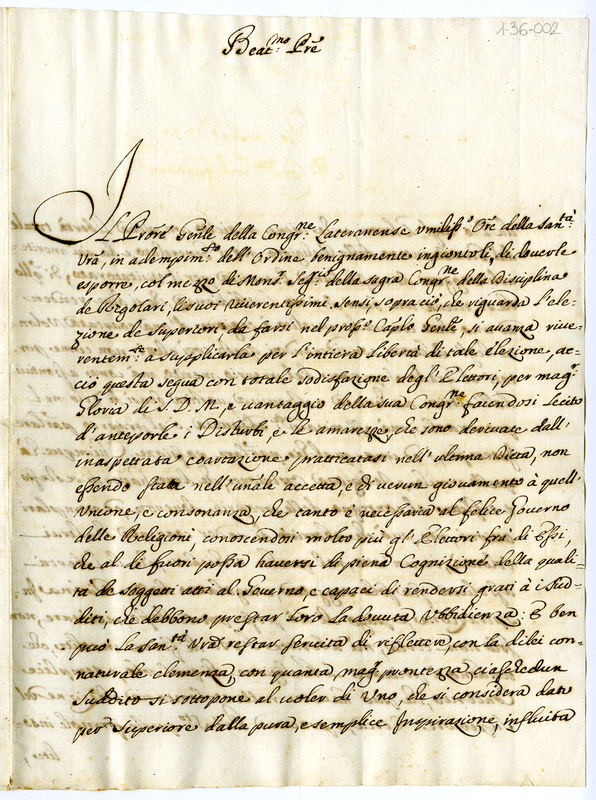 1-36-002
Beat.mo Prē
Il Procrē Genl̄e della Congr.ne Lateranense vmiliss.o Orē della San.tà
Vrā, in adempim.to dell'Ordine benignamente ingiontoli, di doverle
esporre, col mezzo di Mons.r Seg.rio della sagra Congr.ne della Disciplina
de Regolari, li suoi riverentissimi sensi, sopra ciò, che riguarda l'ele=
zione de Superiori, da farsi nel pross.o Cap.lo Genl̄e, si avanza rive=
rentem.te a supplicarla per l'intiera libertà di tale elezione, ac=
ciò questa segua con totale sodisfazione degl'Elettori, per mag.r
Gloria di S. D. M., e vantaggio della sua Congr.ne, facendosi lecito
d'anteporle i Disturbi, e le amarezze, che sono derivate dall'
inaspettata coartazione pratticatasi nell'ultima Dieta, non
essendo stata nell'unãle accetta, e di verun giovamento à quell'
Vnione, e consonanza, che tanto è necessaria al felice Governo
delle Religioni, conoscendosi molto più gl'Elettori frà di Essi,
che al di fuori possa haversi di piena Cognizione della quali=
tà de soggetti atti al Governo, e capaci di rendersi grati à i sud=
diti, che debbono prestar loro la dovuta Vbbidienza: E ben
può la San.tà Vrā restar servita di riflettere, con la di lei con=
naturale clemenza, con quanta mag.r prontezza ciaschedun
suddito si sottopone al voler di Uno, che si considera dato
per Superiore dalla pura, e semplice Inspirazione, influita